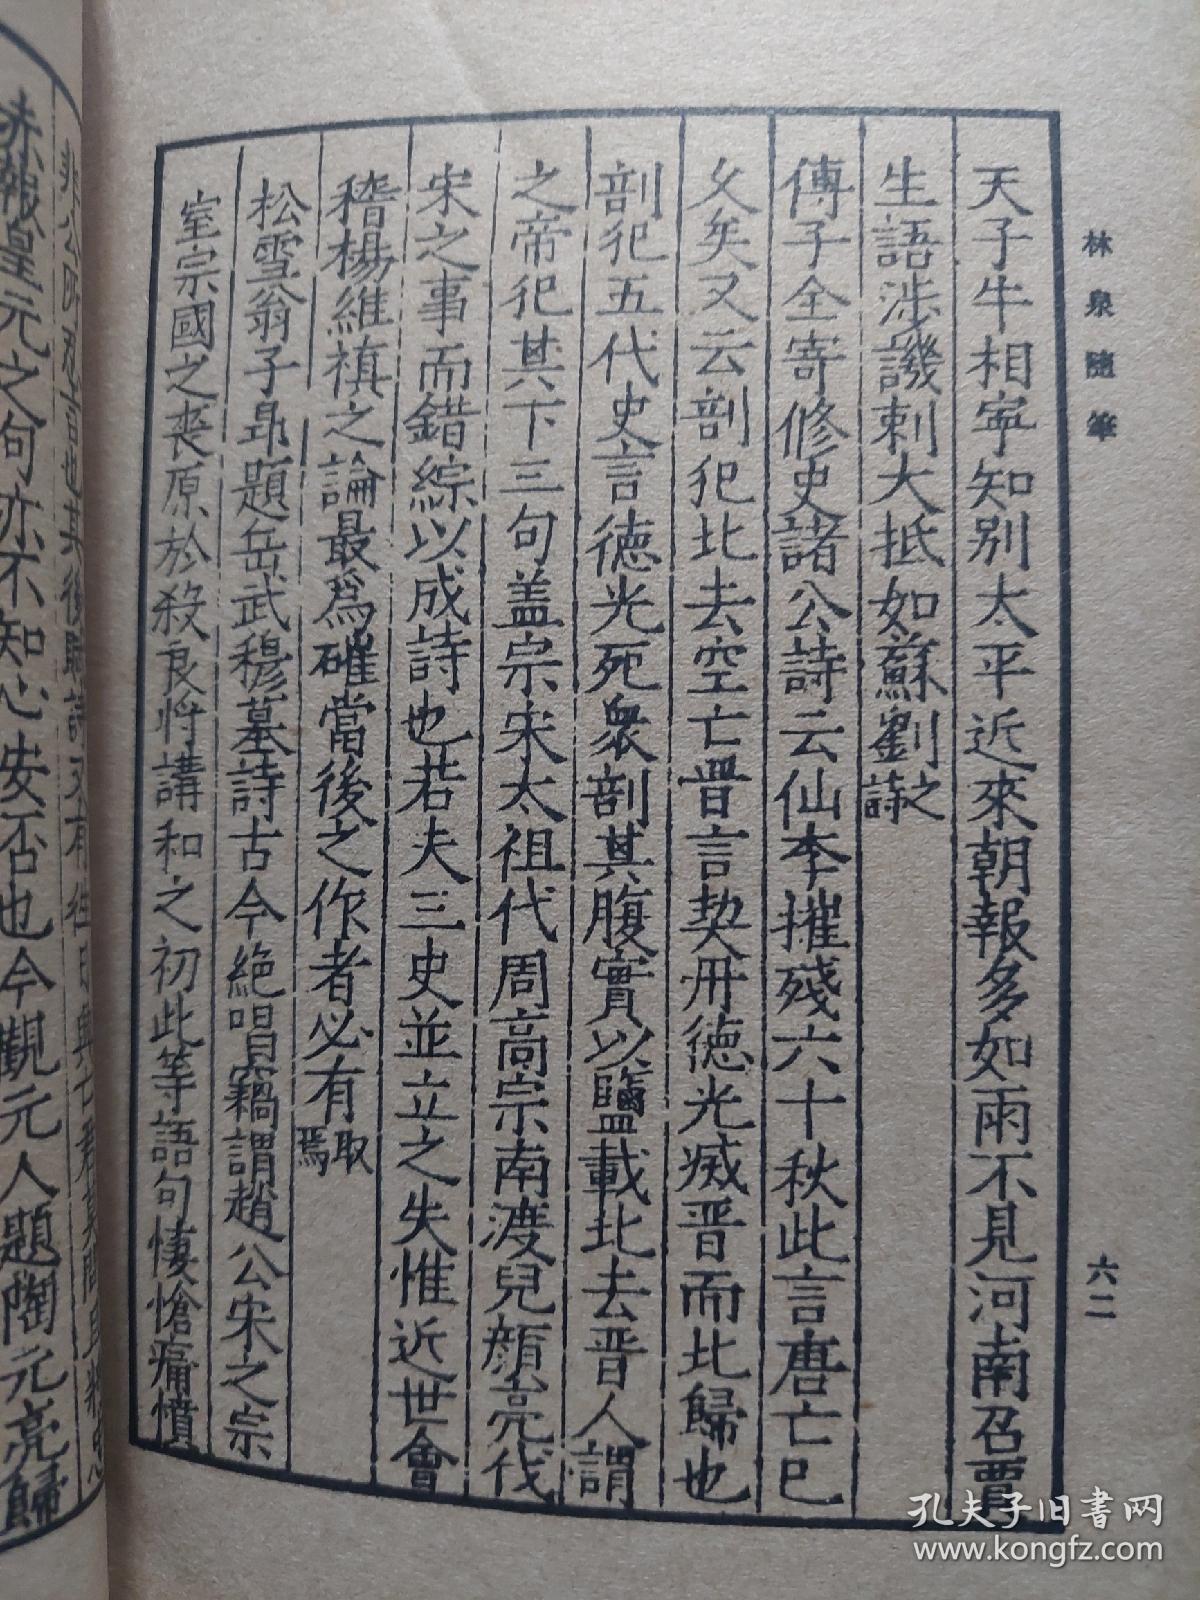 林泉隨筆
六二
天子牛相寧知別太平近來朝報多如雨不見河南召賈
生語涉譏刺大抵如蘇劉之詩
傳子全寄修史諸公詩云仙李摧殘六十秋此言唐亡已
久矣又云剖犯北去空亡晋言契丹德光滅晋而北歸也
剖犯五代史言德光死衆剖其腹實以鹽載北去晋人謂
之帝犯其下三句盖宗宋太祖代周高宗南渡兒顔亮伐
宋之事而錯綜以成詩也若夫三史並立之失惟近世會
稽楊維禎之論最爲確當後之作者必有取焉
松雪翁子昻題岳武穆墓詩古今絶唱竊謂趙公宋之宗
室宗國之喪原於殺良將講和之初此等語句悽愴痛憤
赤報皇元之句亦不知心安否也今觀元人題陶元亮歸
孔夫子旧书网
www.kongfz.com